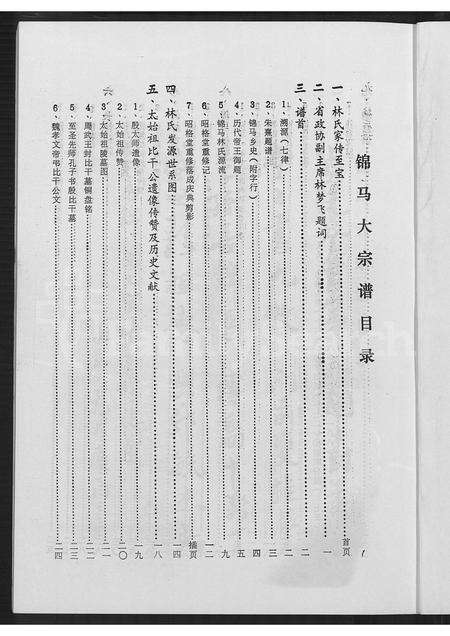 锦马大宗谱目录
一、林氏家传至宝……首页
二、省政协副主席林梦飞题词……一
三、谱首……二
1、溯源(七律)……二
2、朱熹题谱……三
3、锦马乡史(附字行)……四
4、历代帝王御题……五
5、锦马林氏源流……九
6、昭格堂重修记……一二
7、昭格堂重修落成庆典剪影……插页
四、林氏发源世系图……一四
五、太始祖比干公遗像传赞及历史文献……一八
1、殷太师遗像……一九
2、太始祖传赞……二〇
3、太始祖陵墓图……二一
4、周武王封比干墓铜盘铭……二二
5、至圣先师孔子书殷比干墓……二三
6、魏孝文帝吊比干公文……二四
1